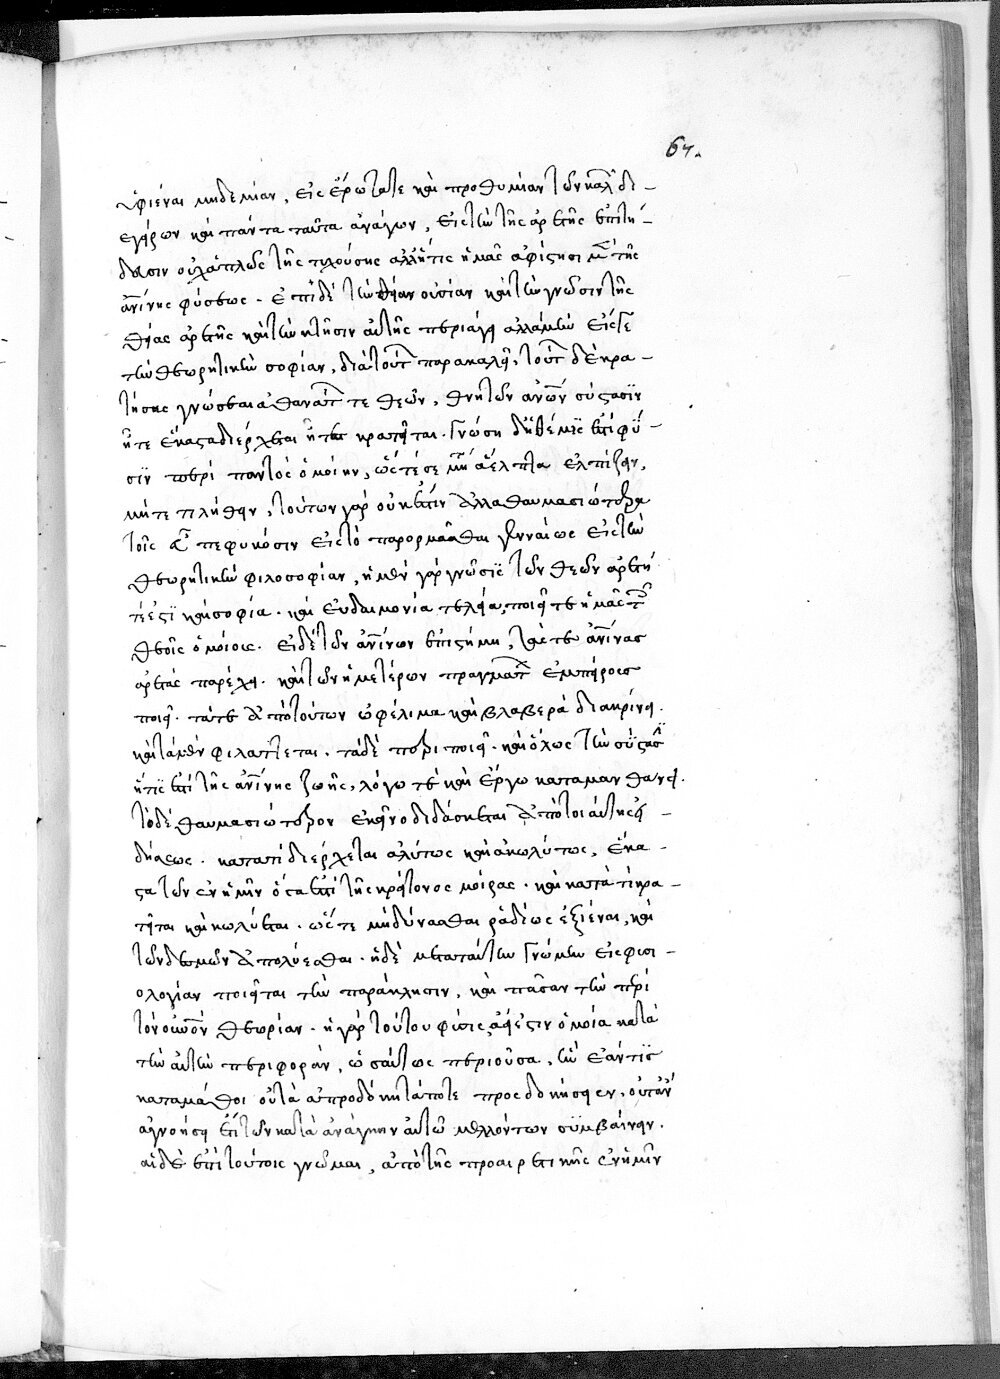 67.
ἀφιέναι μηδεμίαν, εἰς ἔρωτά τε καὶ προθυμίαν τῶν καλῶν δι-
εγείρων καὶ πάντα ταῦτα ἀνάγων, εἰς τὴν τῆς ἀρετῆς ἐπιτή-
δευσιν οὐχ ἁπλῶς τῆς τυχούσης ἀλλ' ἥτις ἡμᾶς ἀφίστησι μὲν τῆς
ἀνθρωπίνης φύσεως. ἐπὶ δὲ τὴν θείαν οὐσίαν καὶ τὴν γνῶσιν τῆς
θείας ἀρετῆς καὶ τὴν κτῆσιν αὐτῆς περιάγει ἀλλὰ μὴν εἴς γε
τὴν θεωρητικὴν σοφίαν, διὰ τούτων παρακαλεῖ, τούτων δὲ κρα-
τήσας γνώσεαι ἀθανάτων τε θεῶν, θνητῶν ἀνθρώπων σύστασιν
ᾗτε ἕκαστα διέρχεται ᾗτε κρατεῖται. Γνώσῃ δ' ᾗ θέμις ἐστὶ φύ-
σιν περὶ παντὸς ὁμοίην, ὥς τέ σε μήτε ἄελπτα ἐλπίζειν,
μήτε τι λήθειν, τούτων γὰρ οὐκ ἔστιν ἄλλα θαυμασιώτερα
τοῖς εὖ πεφυκόσιν εἰς τὸ παρορμᾶσθαι γενναίως εἰς τὴν
θεωρητικὴν φιλοσοφίαν, ἡ μὲν γὰρ γνῶσις τῶν θεῶν ἀρετή
τέ ἐστι καὶ σοφία. καὶ εὐδαιμονία τελεία, ποιεῖ τε ἡμᾶς τοῖς
θεοῖς ὁμοίους. εἰ δὲ τῶν ἀνθρωπίνων ἐπιστήμη, τάς τε ἀνθρωπίνας
ἀρετάς παρέχει. καὶ τῶν ἡμετέρων πραγμάτων ἐμπείρους
ποιεῖ. τά τε ἀπὸ τούτων ὠφέλιμα καὶ βλαβερὰ διακρίνει.
καὶ τὰ μὲν φυλάττεται. τὰ δὲ περιποιεῖ. καὶ ὅλως τὴν σύστασιν
ἥτις ἐστὶ τῆς ἀνθρωπίνης ζωῆς, λόγω τε καὶ ἔργω καταμανθάνει.
τὸ δὲ θαυμασιώτερον ἐκεῖνο διδάσκεται ἀπὸ τοιαύτης εἰ-
δήσεως. κατὰ τί διέρχεται ἀλύτως καὶ ἀκωλύτως, ἕκα-
στα τῶν ἐν ἡμῖν ὅσα ἐστὶ τῆς κρείττονος μοίρας. καὶ κατὰ τί κρα-
τεῖται καὶ κωλύεται. ὥστε μὴ δύνασθαι ῥαδίως ἐξιέναι, καὶ
τῶν δεσμῶν ἀπολύεσθαι. ἡ δὲ μετὰ ταύτην γνώμην εἰς φυσι-
ολογίαν ποιεῖται τὴν παράκλησιν, καὶ πᾶσαν τὴν περὶ
τὸν οὐρανὸν θεωρίαν. ἡ γὰρ τούτου φύσις ἀεί ἐστιν ὁμοία κατὰ
τὴν αὐτὴν περιφορὰν, ὡσαύτως περιοῦσα, ἣν ἐάν τις
καταμάθοι οὔτε ἀπροσδόκητά ποτε προσδοκήσειεν, οὔτ' ἂν
ἀγνοήσῃ ἔτι τῶν κατὰ ἀνάγκην αὐτῶ μελλόντων συμβαίνειν.
αἱ δὲ ἐπὶ τούτοις γνῶμαι, ἀπὸ τῆς προαιρετικῆς ἐν ἡμῖν